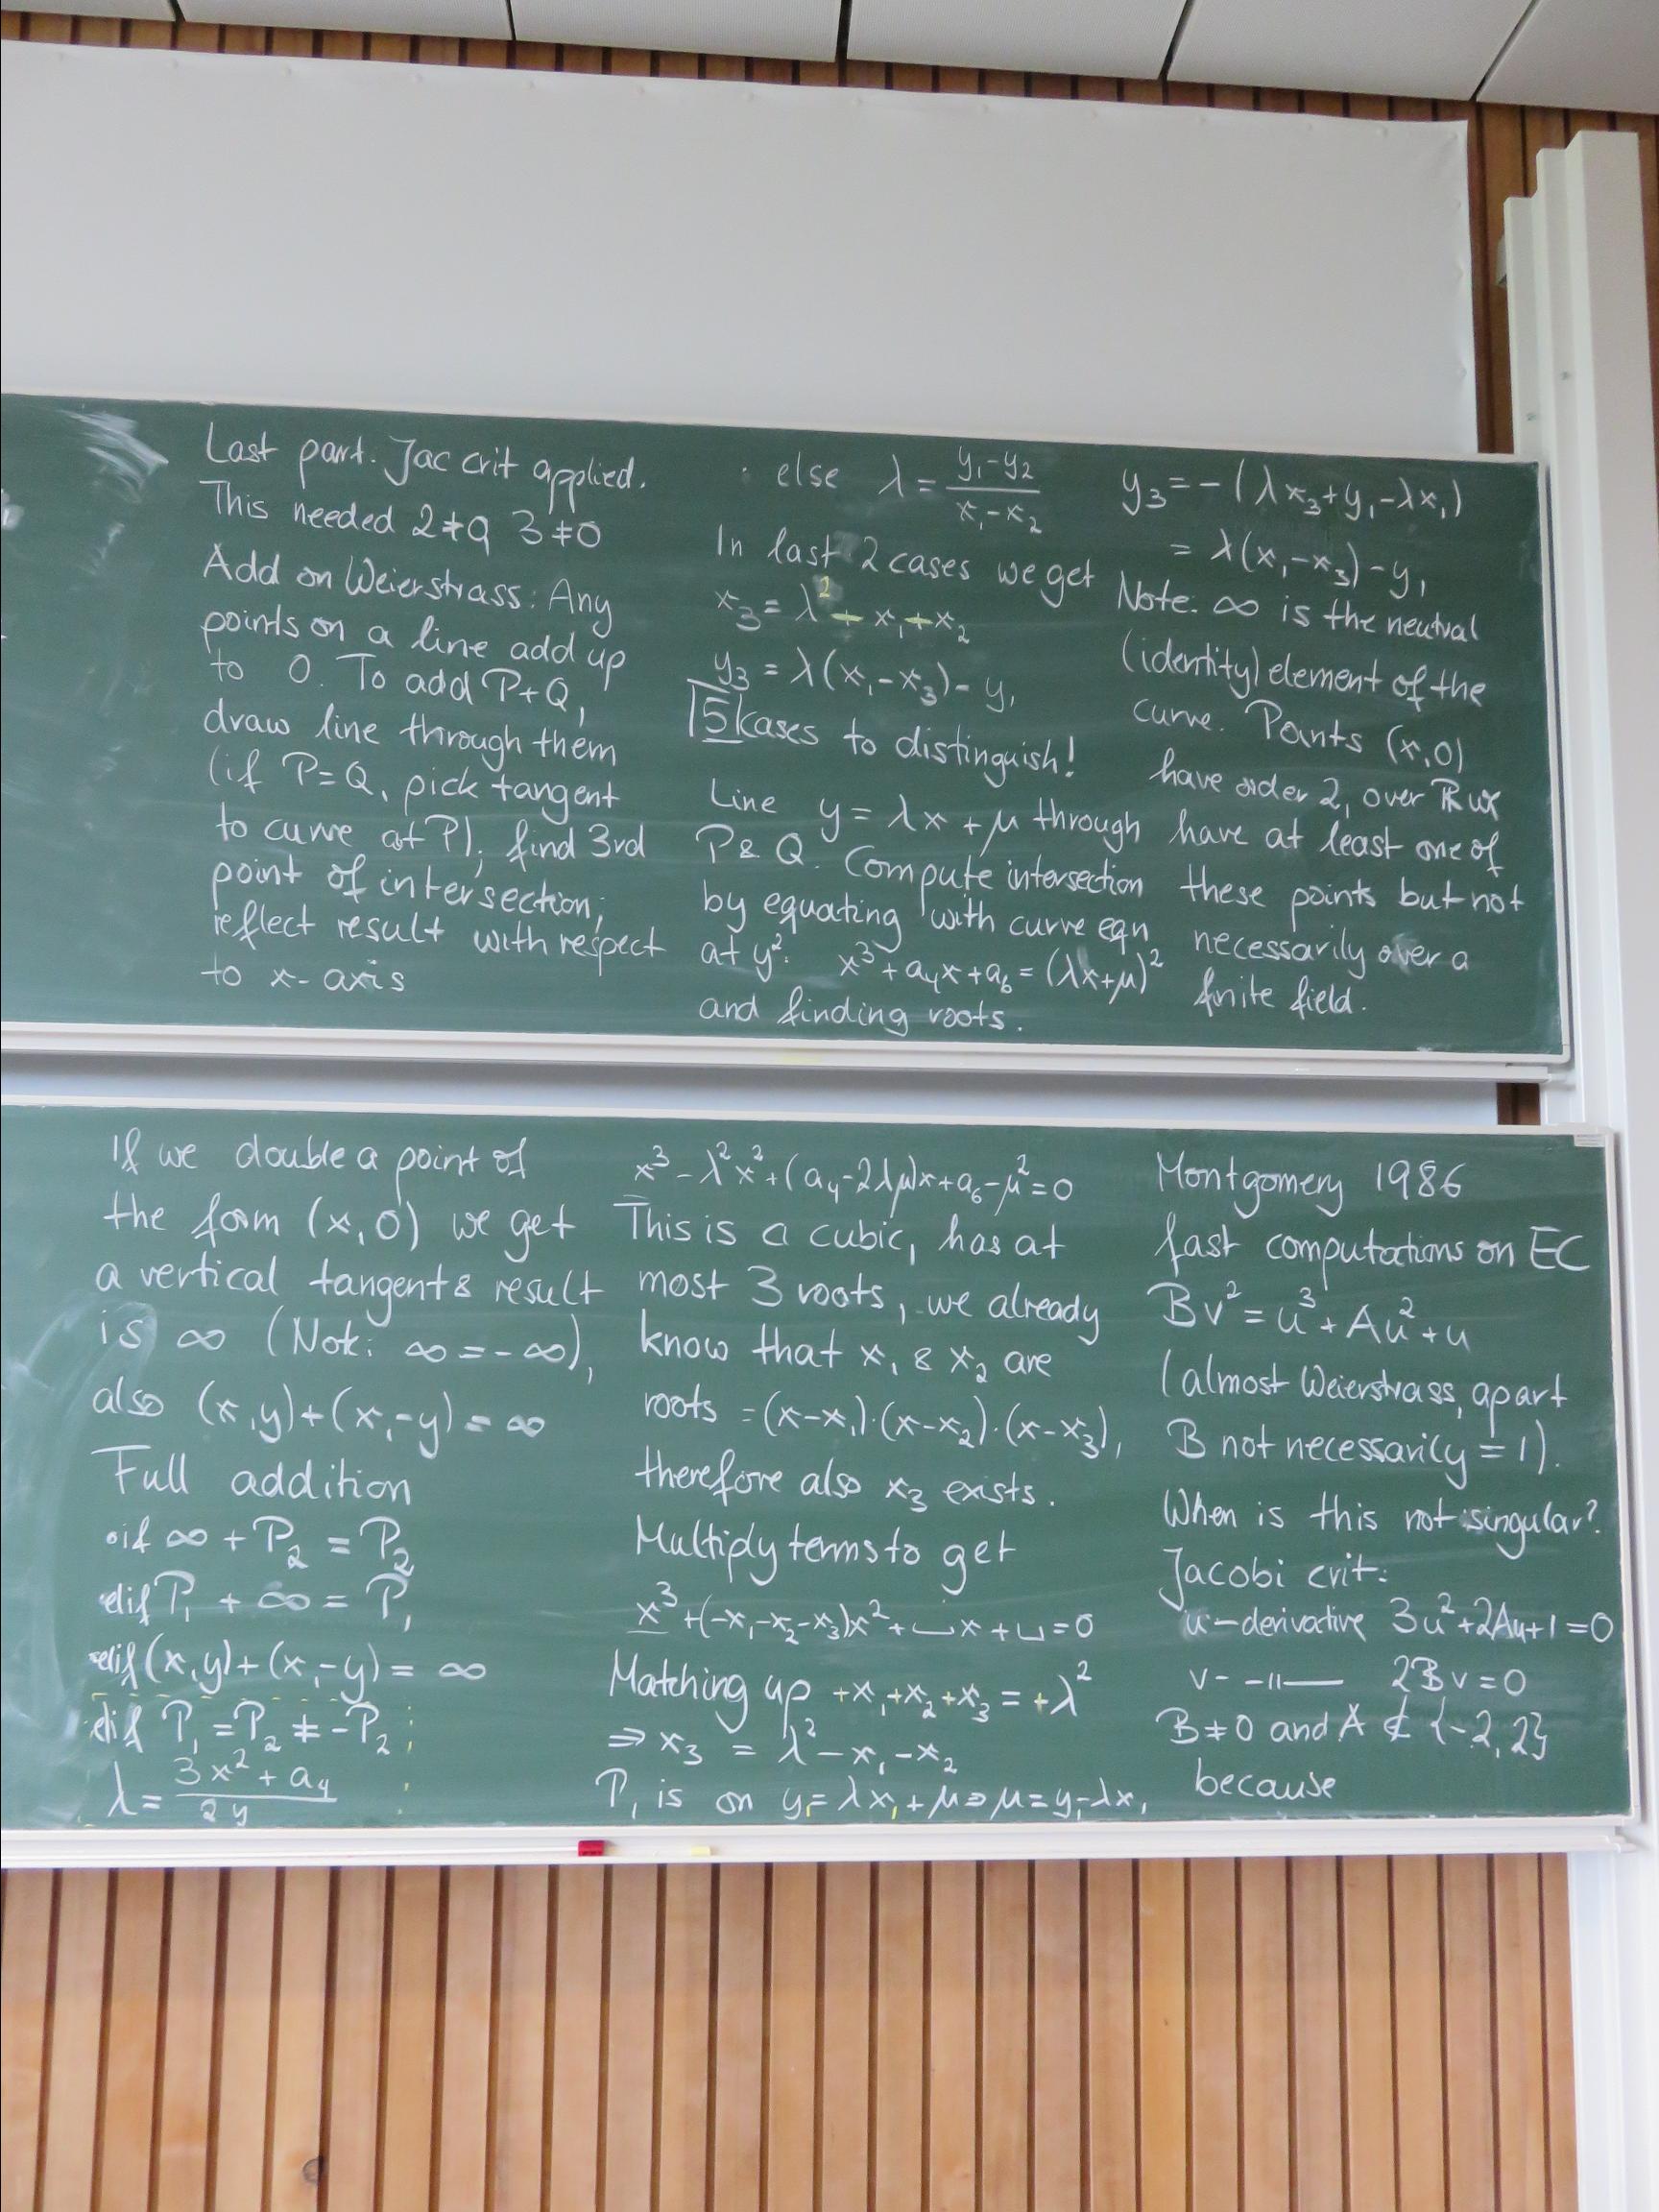 Last part. Jac crit applied.
This needed 2≠0, 3≠0
Add on Weierstrass: Any
points on a line add up
to 0. To add P+Q,
draw line through them
(if P=Q, pick tangent
to curve at P), find 3rd
point of intersection;
reflect result with respect
to x-axis
· else λ = (y₁-y₂)/(x₁-x₂)
In last 2 cases we get
x₃ = λ² - x₁ - x₂
y₃ = λ(x₁-x₃)-y₁
5 cases to distinguish!
Line y = λx + μ through
P & Q. Compute intersection
by equating with curve eqn
at y²: x³+a₄x+a₆ = (λx+μ)²
and finding roots.
y₃ = -(λx₃+y₁-λx₁)
= λ(x₁-x₃)-y₁
Note: ∞ is the neutral
(identity) element of the
curve. Points (x,0)
have order 2, over ℝ we
have at least one of
these points but not
necessarily over a
finite field.
If we double a point of
the form (x,0) we get
a vertical tangent & result
is ∞ (Note: ∞ = -∞),
also (x,y)+(x,-y) = ∞
Full addition
· if ∞ + P₂ = P₂
elif P₁ + ∞ = P₁
elif (x,y)+(x,-y) = ∞
elif P₁ = P₂ ≠ -P₂
λ = (3x²+a₄)/(2y)
x³-λ²x²+(a₄-2λμ)x+a₆-μ²=0
This is a cubic, has at
most 3 roots, we already
know that x₁ & x₂ are
roots = (x-x₁)·(x-x₂)·(x-x₃),
therefore also x₃ exists.
Multiply terms to get
x³+(-x₁-x₂-x₃)x²+⌴x+⌴=0
Matching up +x₁+x₂+x₃ = +λ²
⇒ x₃ = λ²-x₁-x₂
P₁ is on y₁=λx₁+μ ⇒ μ=y₁-λx₁
Montgomery 1986
fast computations on EC
Bv² = u³+Au²+u
(almost Weierstrass, apart
B not necessarily = 1).
When is this not singular?
Jacobi crit:
u-derivative 3u²+2Au+1=0
v- -〃— 2Bv=0
B≠0 and A ∉ {-2,2}
because